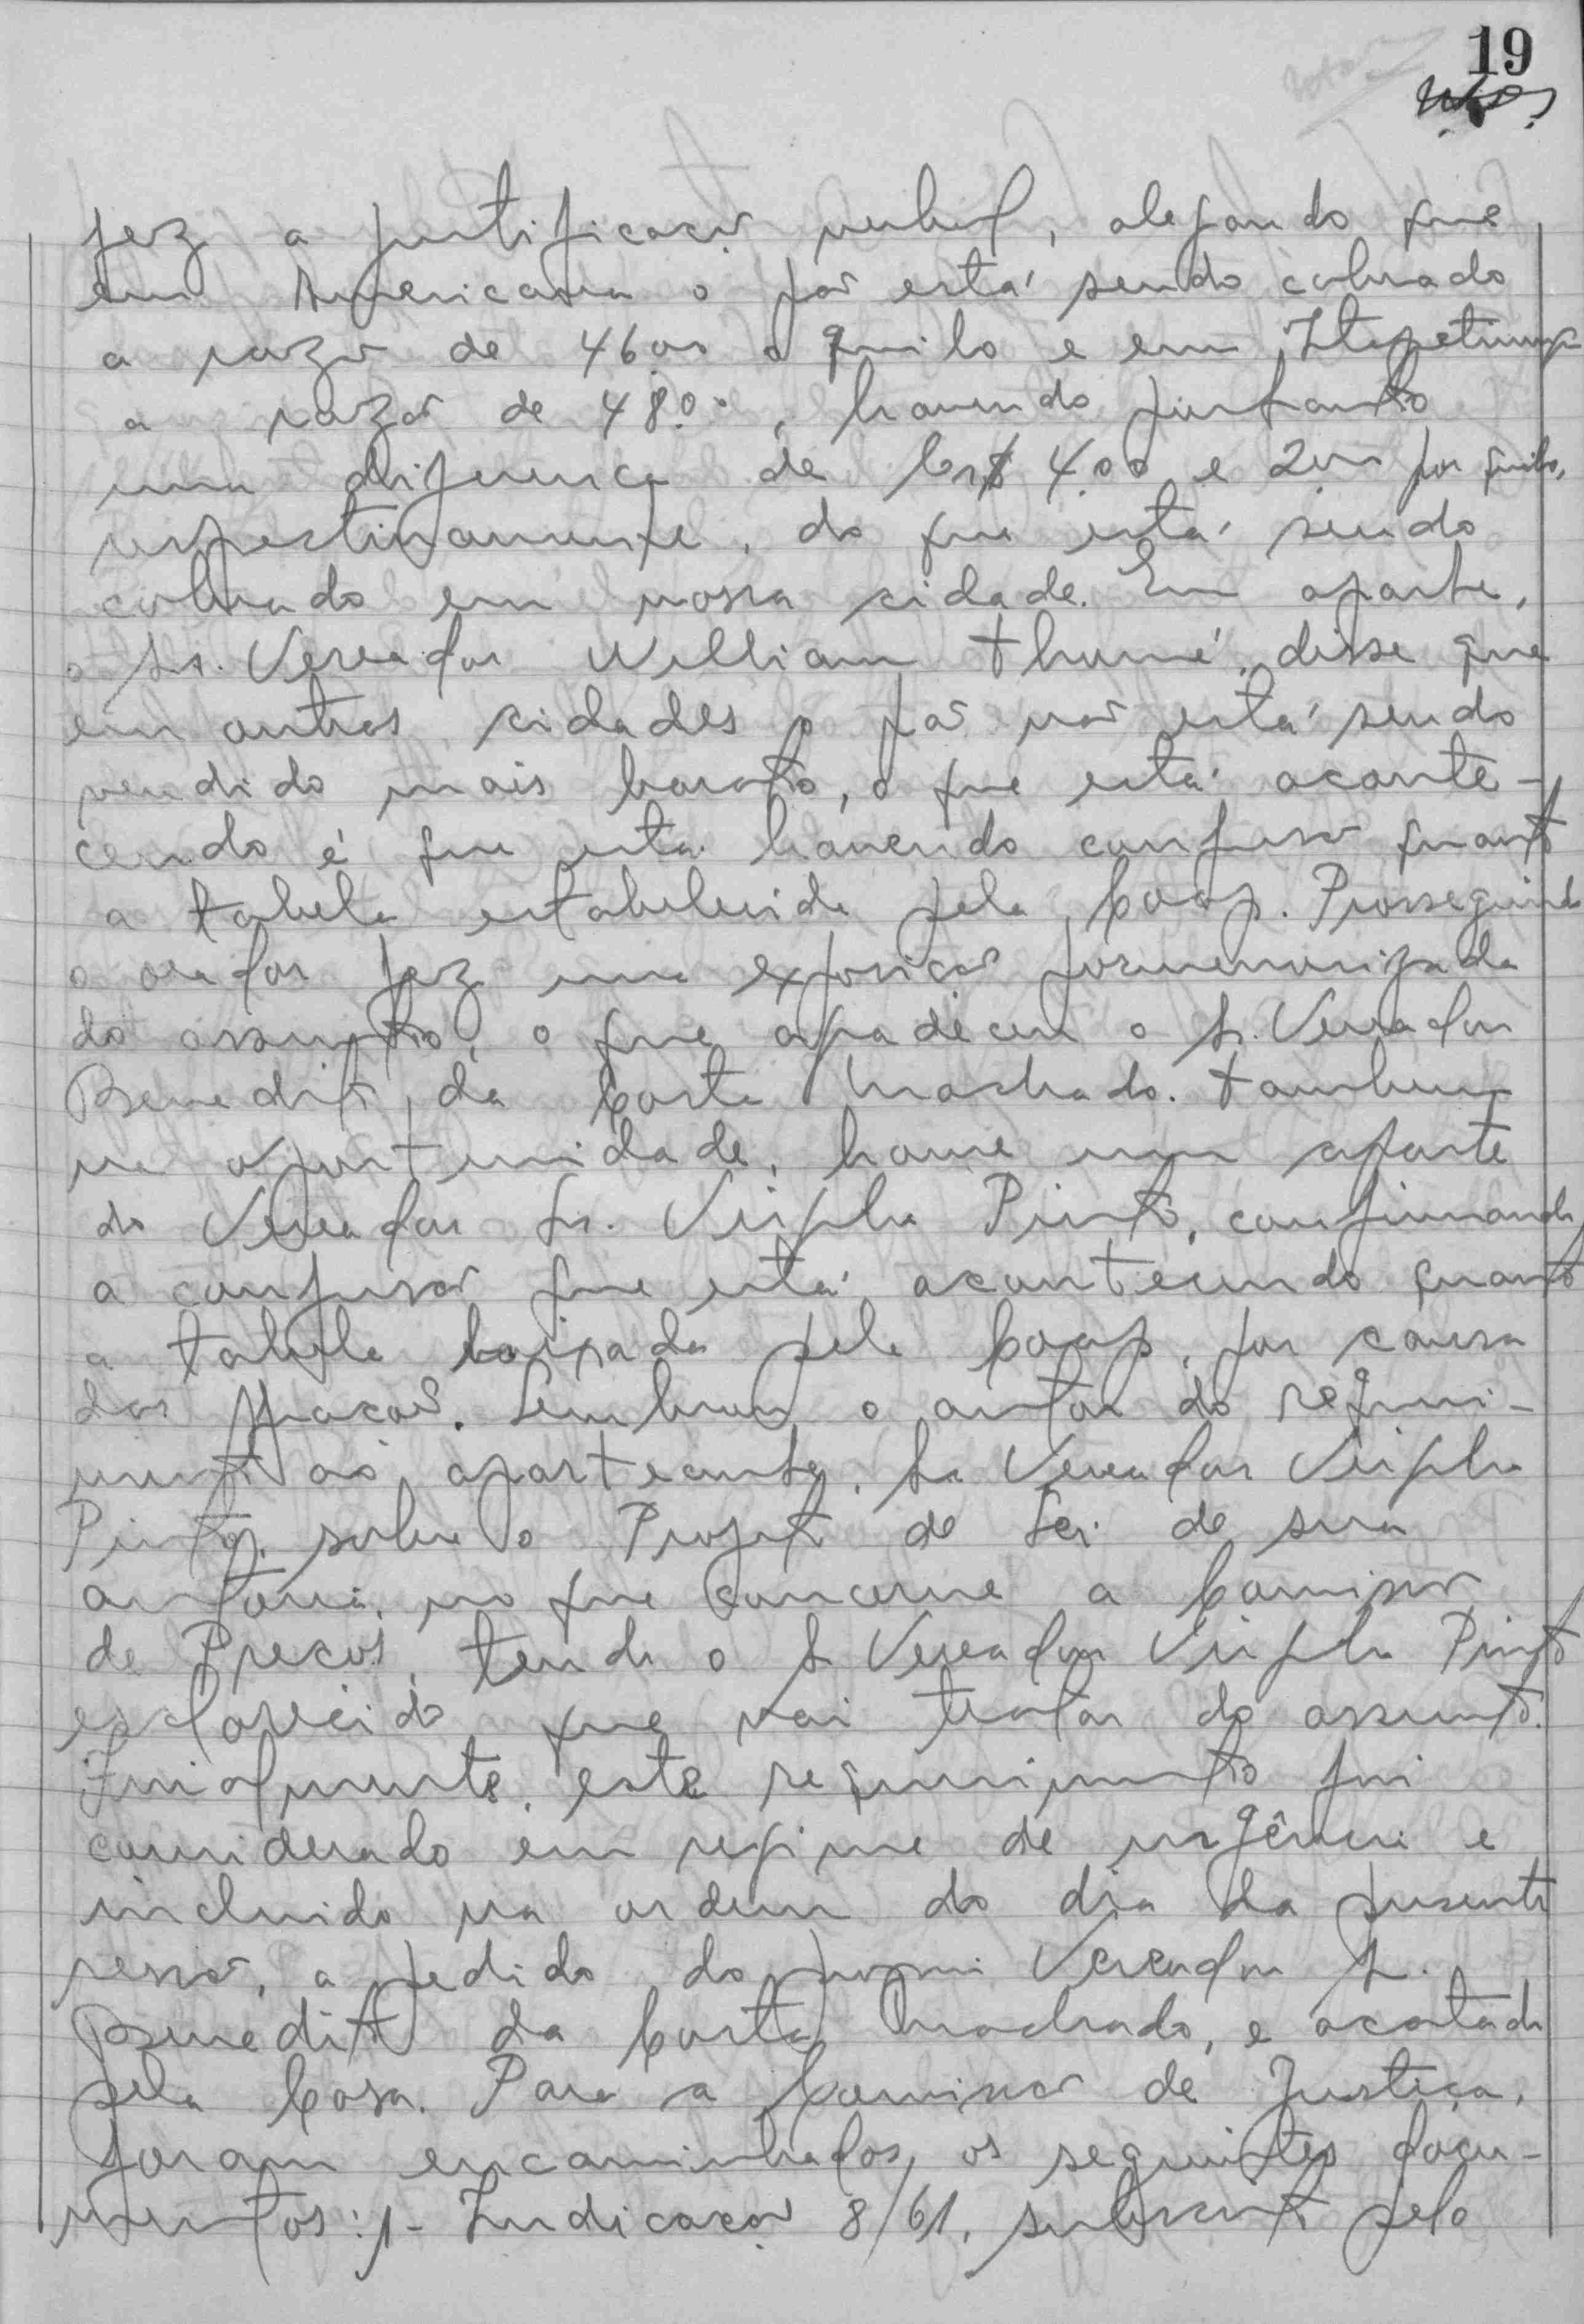 19
fez a justificação verbal, alegando que
em Americana o pão está sendo cobrado
a razão de 46,00 o quilo e em Itapetininga
a razão de 48,00, havendo portanto
uma diferença de Cr$ 4,00 e 2,00 por quilo,
respectivamente, do que está sendo
cobrado em nossa cidade. Em aparte,
o Sr. Vereador William Thomé, disse que
em outras cidades o pão não está sendo
vendido mais barato, o que está aconte-
cendo é que está havendo confusão quanto
a tabela estabelecida pela Coap. Prosseguindo
o orador fez uma exposição pormenorizada
do assunto, o que agradeceu o Sr. Vereador
Benedito da Costa Machado. Também
na oportunidade, houve um aparte
do Vereador Sr. Virgilio Pinto, confirmando
a confusão que está acontecendo quanto
a tabela baixada pela Coap, por causa
das frações. Lembrou o autor do requeri-
mento ao aparteante, Sr Vereador Virgilio
Pinto, sobre o Projeto de Lei de sua
autoria, no que concerne a Comissão
de Preços, tendo o Sr Vereador Virgilio Pinto
esclarecido que vai tratar do assunto.
Finalmente, este requerimento foi
considerado em regime de urgência e
incluido na ordem do dia da presente
sessão, a pedido do proprio Vereador Sr.
Benedito da Costa Machado, e acatado
pela Casa. Para a Comissão de Justiça,
foram encaminhados os seguintes docu-
mentos: 1- Indicação 8/61, subscrito pelo